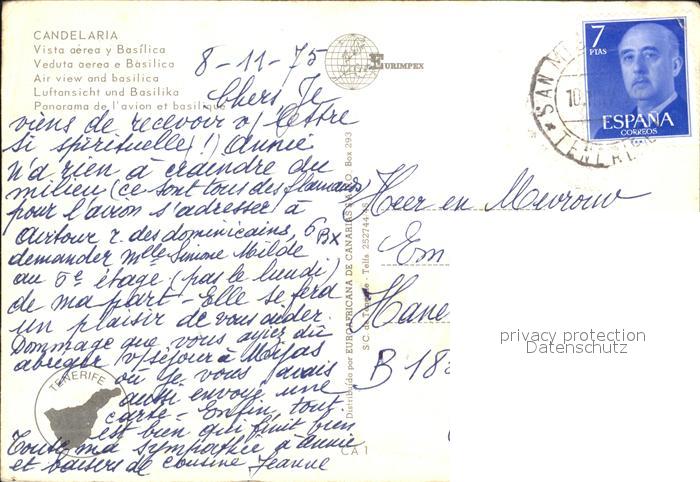 CANDELARIA
Vista aérea y Basílica
Veduta aerea e Basilica
Air view and basilica
Luftansicht und Basilika
Panorama de l'avion et basilique
EURIMPEX
7
PTAS
ESPAÑA
CORREOS
SAN MI
10
TENERI
8-11-75
Chers Je
viens de recevoir v/ lettre
si spirituelle! ) Annie
n'a rien à craindre du
milieu (ce sont tous des flamands)
pour l'avion s'adresser à
Airtour r. des dominicains, 6 BX
demander Mlle Simone Milde
au 5e étage (pas le lundi)
de ma part - Elle se fera
un plaisir de vous aider.
Dommage que vous ayez dû
abréger v/ séjour à Mijas
où je vous avais
aussi envoyé une
carte - Enfin, tout
est bien qui finit bien
Toute ma sympathie à Annie
et baisers de cousine Jeanne
TENERIFE
Distribuido por EUROAFRICANA DE CANARIAS S.A. O. Box 293
S.C. de Tenerife - Telfs 252744
CA 1
Heer en Mevrouw
Em
Hane
B 18
privacy protection
Datenschutz